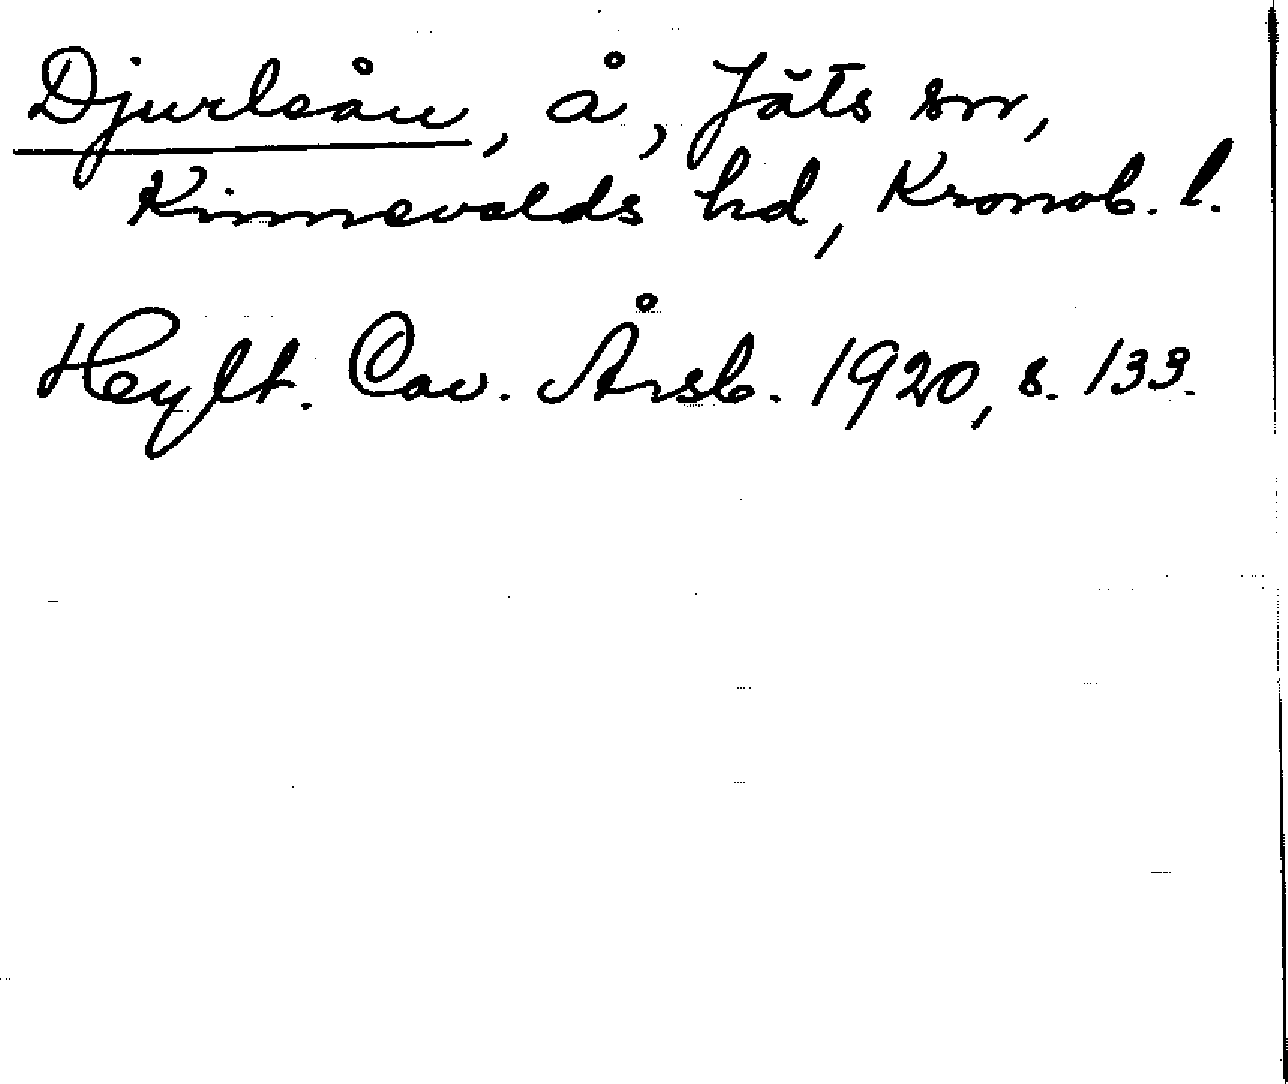 Djurleån, å, Jäts sn,
Kinnevalds hd, Kronob. l.
Hylt. Cav. Årsb. 1920, s. 133.